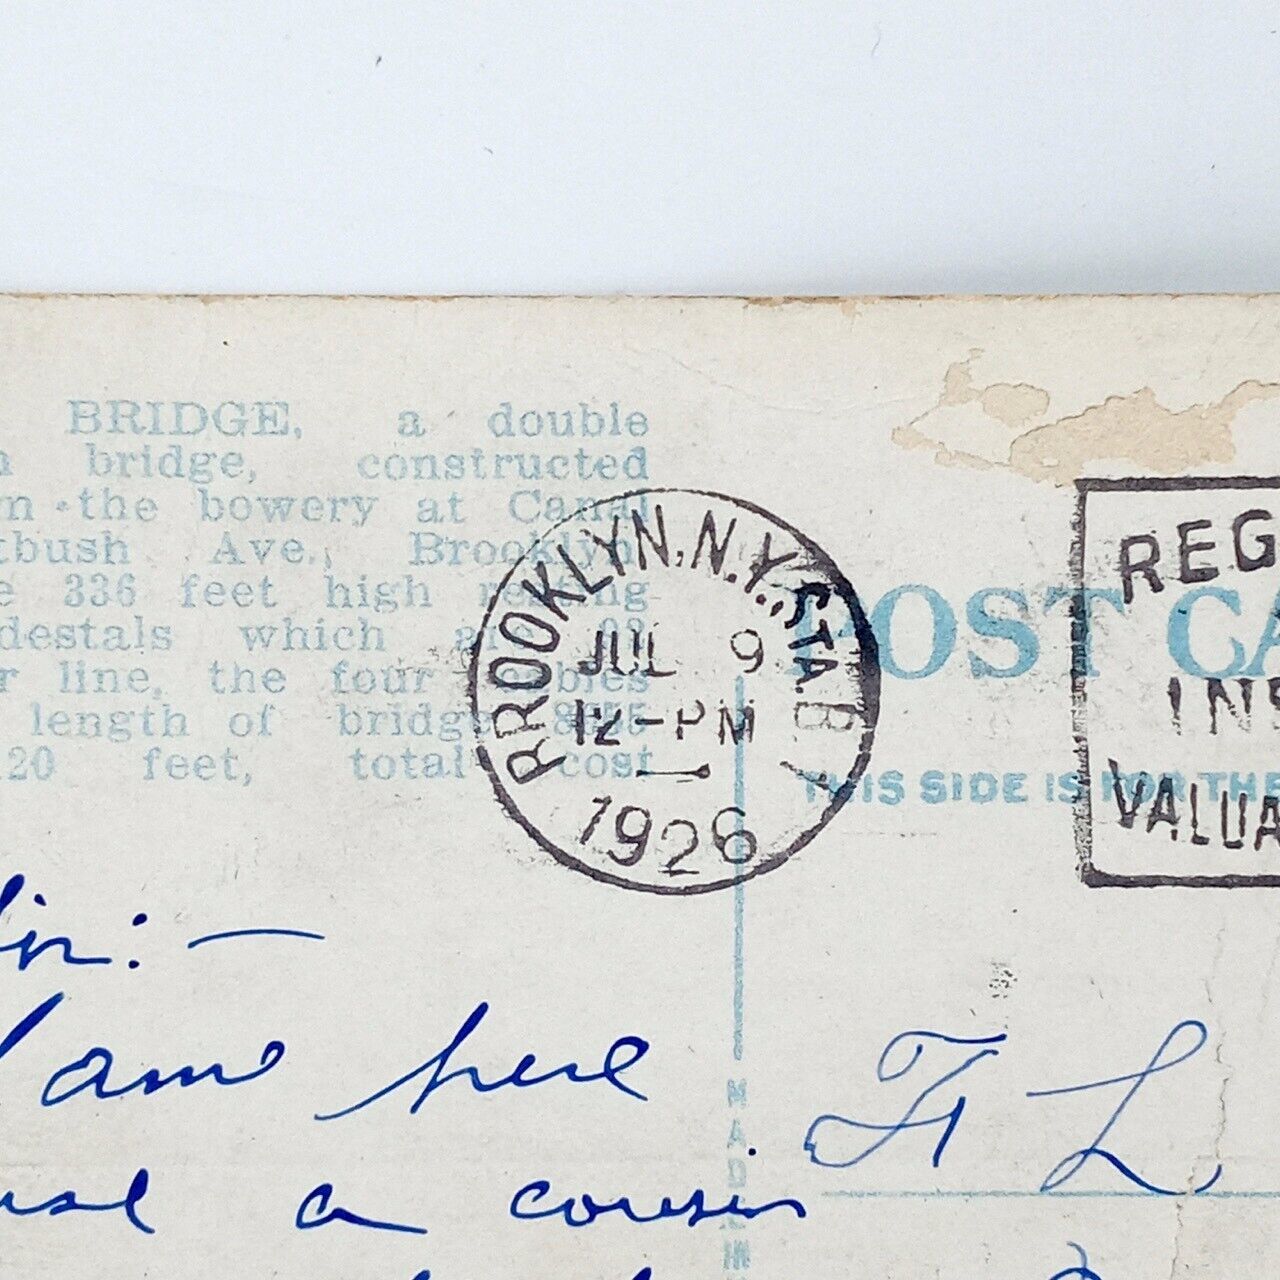 BRIDGE, a double
bridge, constructed
the bowery at Canal
tbush Ave., Brooklyn,
336 feet high resting
destals which are
r line, the four cables
length of bridge 8
20 feet, total cost
BROOKLYN, N.Y. STA. B
JUL 9
12-PM
1926
POST CA
THIS SIDE IS FOR THE
REG
INS
VALUA
Sir:—
I am here
a cousin
MADE IN
F L